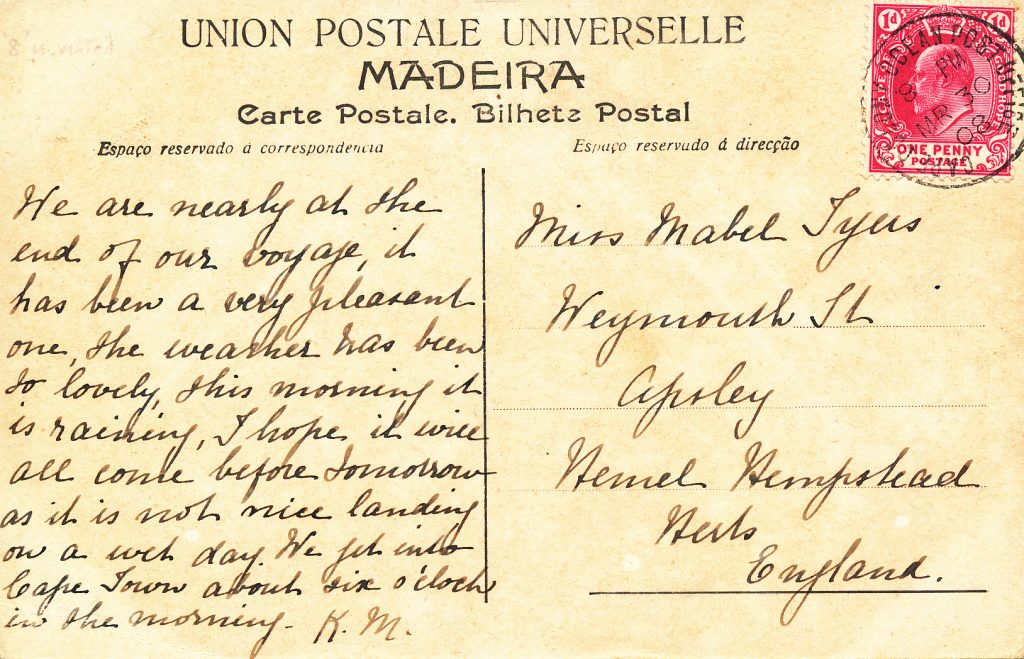 UNION POSTALE UNIVERSELLE
MADEIRA
Carte Postale. Bilhete Postal
Espaço reservado á correspondencia
Espaço reservado á direcção
1d 1d
CAPE OF GOOD HOPE
ONE PENNY
POSTAGE
OCEAN POST OFFICE
8 PM
MR 30
08
CAPE TOWN
We are nearly at the
end of our voyage, it
has been a very pleasant
one, the weather has been
so lovely, this morning it
is raining, I hope it will
all come before tomorrow
as it is not nice landing
on a wet day. We get into
Cape Town about six o'clock
in the morning. K. M.
Miss Mabel Tyers
Weymouth St
Apsley
Hemel Hempstead
Herts
England.